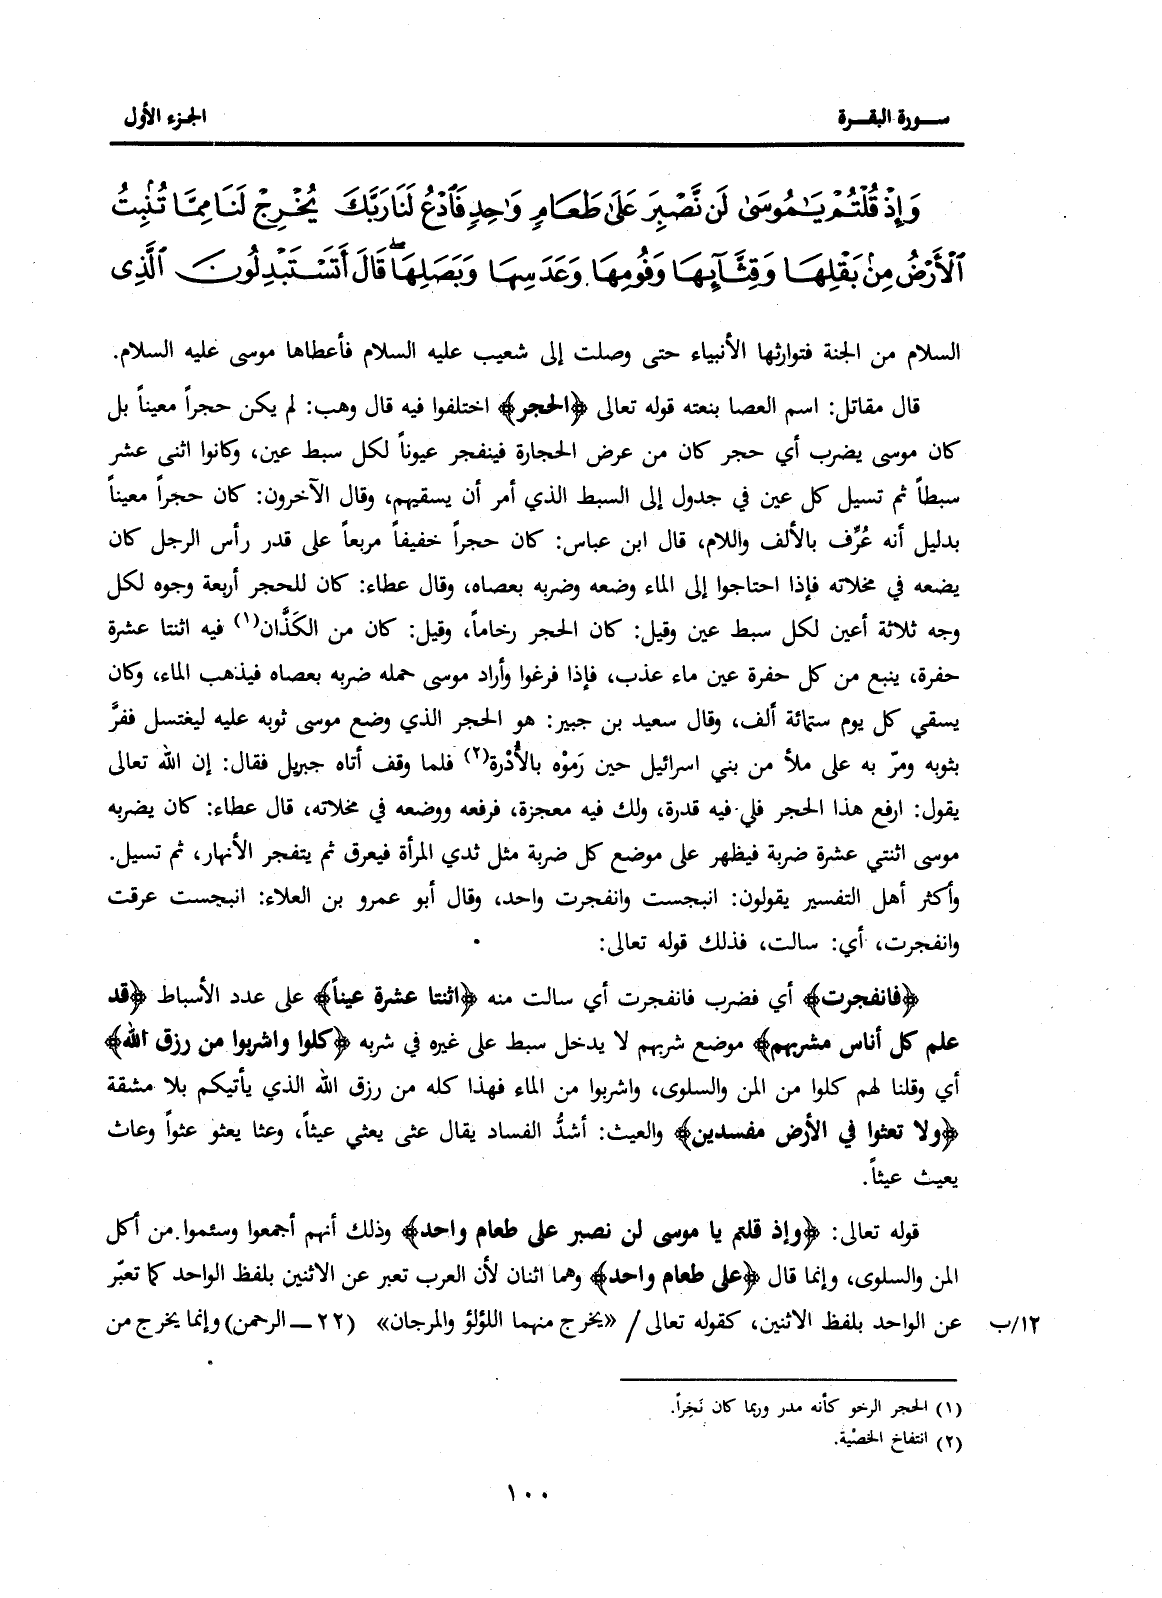 سورة البقرة
الجزء الأول
وَإِذْ قُلْتُمْ يَٰمُوسَىٰ لَن نَّصْبِرَ عَلَىٰ طَعَامٍ وَٰحِدٍ فَٱدْعُ لَنَا رَبَّكَ يُخْرِجْ لَنَا مِمَّا تُنۢبِتُ
ٱلْأَرْضُ مِنۢ بَقْلِهَا وَقِثَّآئِهَا وَفُومِهَا وَعَدَسِهَا وَبَصَلِهَا ۖ قَالَ أَتَسْتَبْدِلُونَ ٱلَّذِى
السلام من الجنة فتوارثها الأنبياء حتى وصلت إلى شعيب عليه السلام فأعطاها موسى عليه السلام.
قال مقاتل: اسم العصا بنعته قوله تعالى ﴿الحجر﴾ اختلفوا فيه قال وهب: لم يكن حجراً معيناً بل
كان موسى يضرب أي حجر كان من عرض الحجارة فينفجر عيوناً لكل سبط عين، وكانوا اثنى عشر
سبطاً ثم تسيل كل عين في جدول إلى السبط الذي أمر أن يسقيهم، وقال الآخرون: كان حجراً معيناً
بدليل أنه عُرِّف بالألف واللام، قال ابن عباس: كان حجراً خفيفاً مربعاً على قدر رأس الرجل كان
يضعه في مخلاته فإذا احتاجوا إلى الماء وضعه وضربه بعصاه، وقال عطاء: كان للحجر أربعة وجوه لكل
وجه ثلاثة أعين لكل سبط عين وقيل: كان الحجر رخاماً، وقيل: كان من الكَذَّان(١) فيه اثنتا عشرة
حفرة، ينبع من كل حفرة عين ماء عذب، فإذا فرغوا وأراد موسى حمله ضربه بعصاه فيذهب الماء، وكان
يسقي كل يوم ستمائة ألف، وقال سعيد بن جبير: هو الحجر الذي وضع موسى ثوبه عليه ليغتسل ففرَّ
بثوبه ومرّ به على ملأ من بني اسرائيل حين رَمَوْه بالأُدْرة(٢) فلما وقف أتاه جبريل فقال: إن الله تعالى
يقول: ارفع هذا الحجر فلي فيه قدرة، ولك فيه معجزة، فرفعه ووضعه في مخلاته، قال عطاء: كان يضربه
موسى اثنتي عشرة ضربة فيظهر على موضع كل ضربة مثل ثدي المرأة فيعرق ثم يتفجر الأنهار، ثم تسيل.
وأكثر أهل التفسير يقولون: انبجست وانفجرت واحد، وقال أبو عمرو بن العلاء: انبجست عرقت
وانفجرت، أي: سالت، فذلك قوله تعالى:
﴿فانفجرت﴾ أي فضرب فانفجرت أي سالت منه ﴿اثنتا عشرة عيناً﴾ على عدد الأسباط ﴿قد
علم كل أناس مشربهم﴾ موضع شربهم لا يدخل سبط على غيره في شربه ﴿كلوا واشربوا من رزق الله﴾
أي وقلنا لهم كلوا من المن والسلوى، واشربوا من الماء فهذا كله من رزق الله الذي يأتيكم بلا مشقة
﴿ولا تعثوا في الأرض مفسدين﴾ والعيث: أشدُّ الفساد يقال عثى يعثي عيثاً، وعثا يعثو عثواً وعاث
يعيث عيثاً.
قوله تعالى: ﴿وإذ قلتم يا موسى لن نصبر على طعام واحد﴾ وذلك أنهم أجمعوا وسئموا من أكل
المن والسلوى، وإنما قال ﴿على طعام واحد﴾ وهما اثنان لأن العرب تعبر عن الاثنين بلفظ الواحد كما تعبّر
عن الواحد بلفظ الاثنين، كقوله تعالى / «يخرج منهما اللؤلؤ والمرجان» (٢٢ ــ الرحمن) وإنما يخرج من
١٢/ب
(١) الحجر الرخو كأنه مدر وربما كان نَخِراً.
(٢) انتفاخ الخصْية.
١٠٠